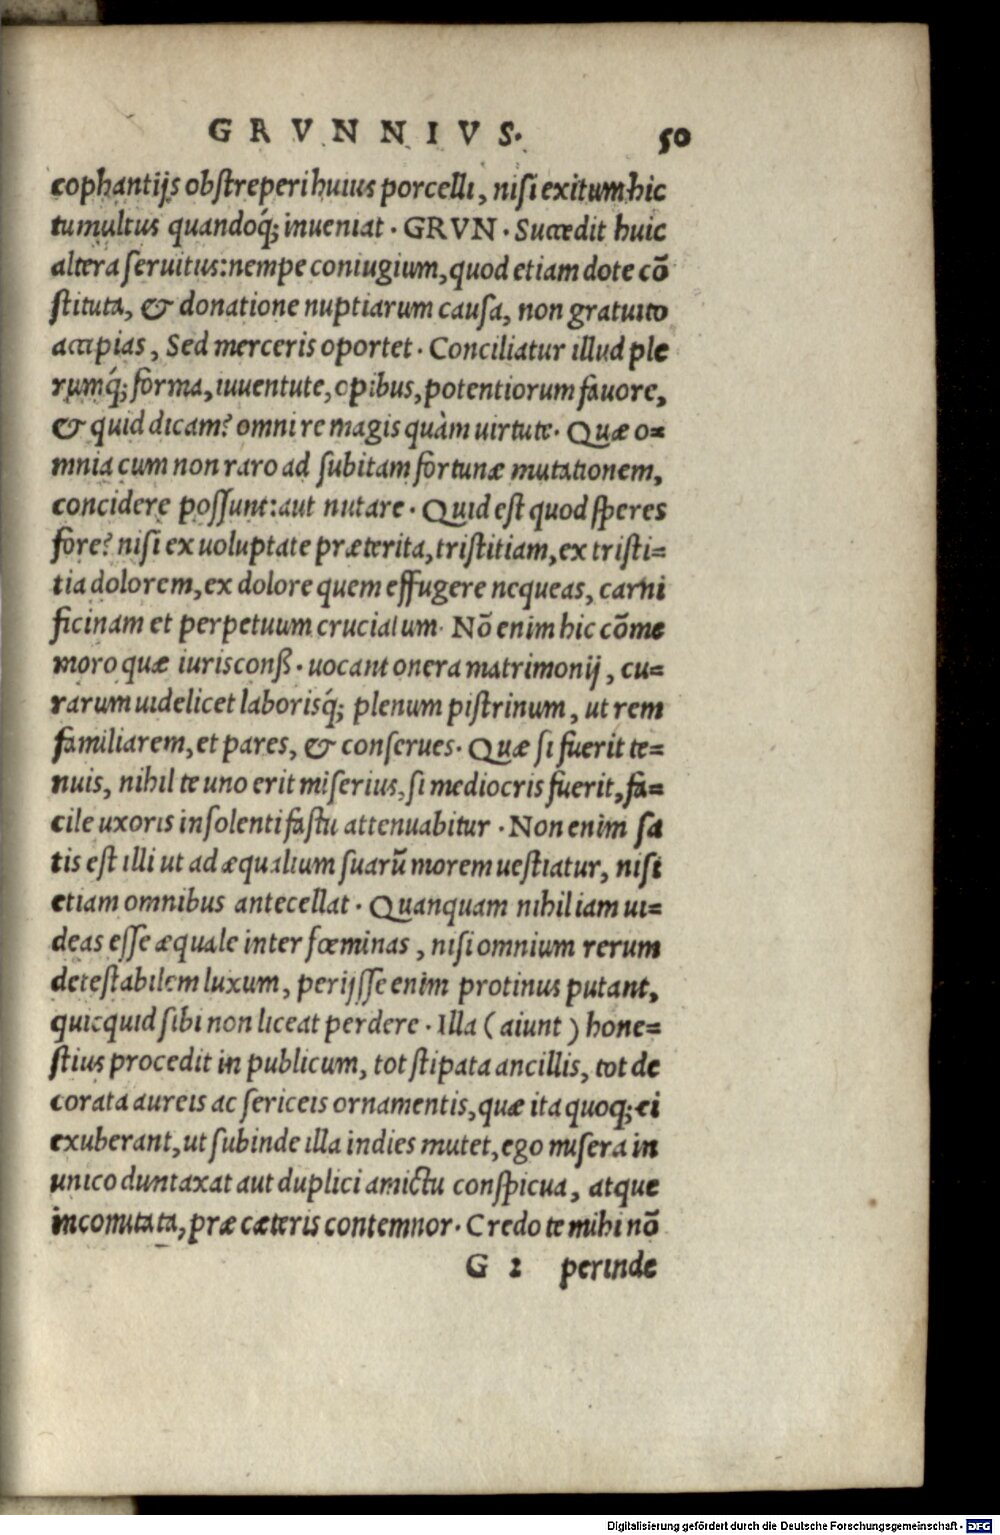 GRVNNIVS. 50
cophantijs obſtreperi huius porcelli, niſi exitum hic
tumultus quandoq́; inueniat. GRVN. Succedit huic
altera ſeruitus: nempe coniugium, quod etiam dote cō
ſtituta, & donatione nuptiarum cauſa, non gratuito
accipias, Sed merceris oportet. Conciliatur illud ple
rumq́; forma, iuuentute, opibus, potentiorum fauore,
& quid dicam? omni re magis quàm uirtute. Quæ o=
mnia cum non raro ad ſubitam fortunæ mutationem,
concidere poſſunt: aut nutare. Quid eſt quod ſperes
fore? niſi ex uoluptate præterita, triſtitiam, ex triſti=
tia dolorem, ex dolore quem effugere nequeas, carni
ficinam et perpetuum cruciatum. Nō enim hic cōme
moro quæ iurisconſ. uocant onera matrimonij, cu=
rarum uidelicet laborisq́; plenum piſtrinum, ut rem
familiarem, et pares, & conſerues. Quæ ſi fuerit te=
nuis, nihil te uno erit miſerius, ſi mediocris fuerit, fa=
cile uxoris inſolenti faſtu attenuabitur. Non enim ſa
tis eſt illi ut ad æqualium ſuarū morem ueſtiatur, niſi
etiam omnibus antecellat. Quanquam nihil iam ui=
deas eſſe æquale inter fœminas, niſi omnium rerum
deteſtabilem luxum, perijſſe enim protinus putant,
quicquid ſibi non liceat perdere. Illa (aiunt) hone=
ſtius procedit in publicum, tot ſtipata ancillis, tot de
corata aureis ac ſericeis ornamentis, quæ ita quoq; ei
exuberant, ut ſubinde illa indies mutet, ego miſera in
unico duntaxat aut duplici amictu conſpicua, atque
incomitata, præ cæteris contemnor. Credo te mihi nō
G 2 perinde
Digitalisierung gefördert durch die Deutsche Forschungsgemeinschaft - DFG